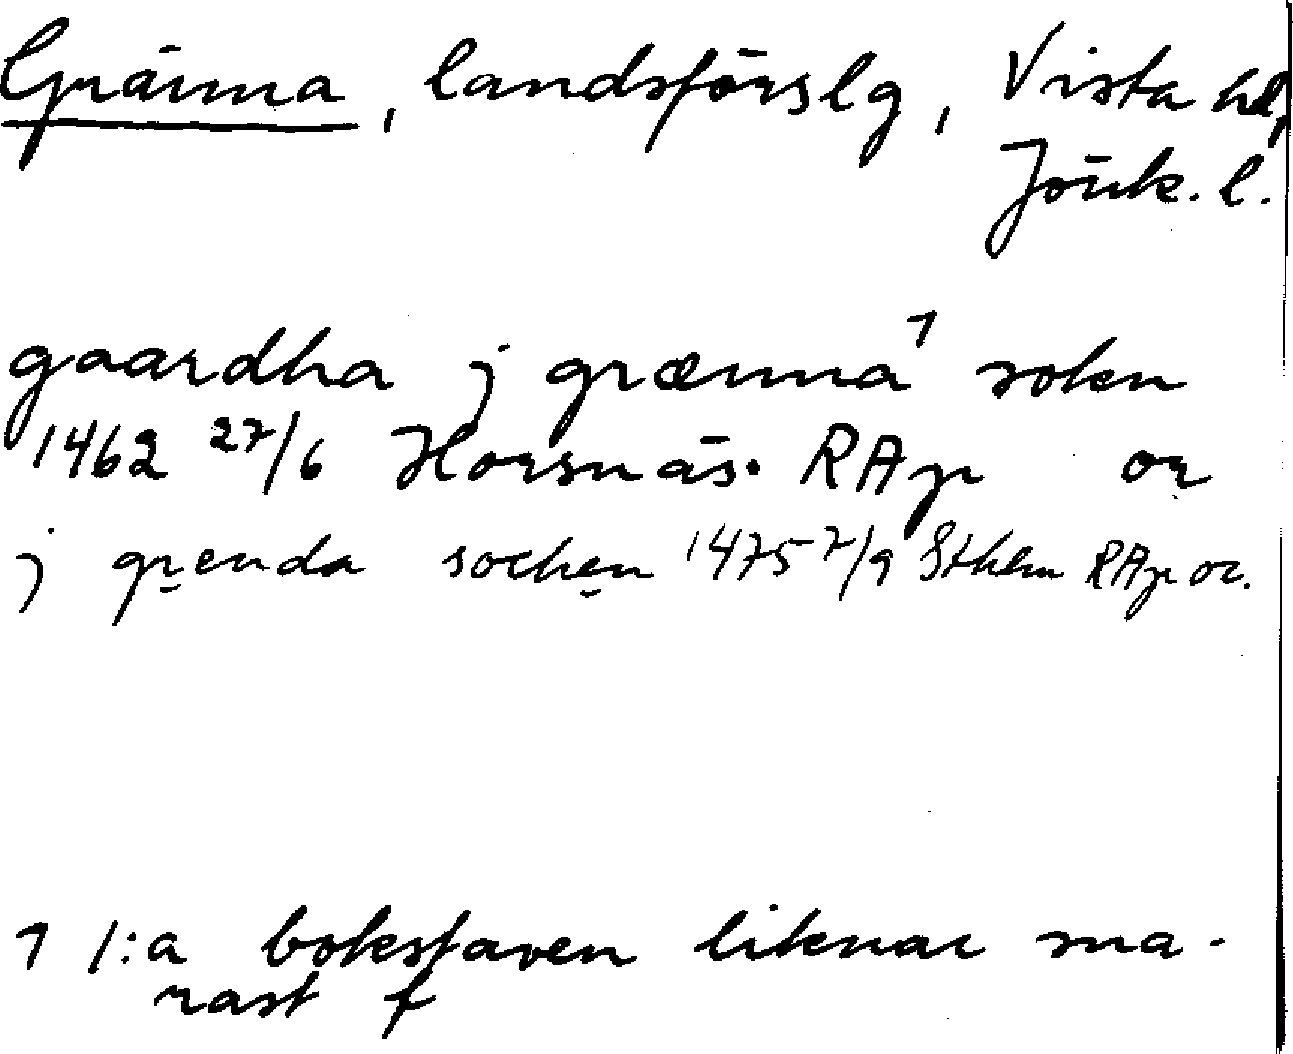 Gränna, landsförslg, Vista hd,
Jönk. l.
gaardha j grænna¹ soken
1462 27/6 Horsnäs. RAp or
j grenda sochen 1475 7/9 Sthlm RAp or.
1 1:a bokstaven liknar sna-
rast f